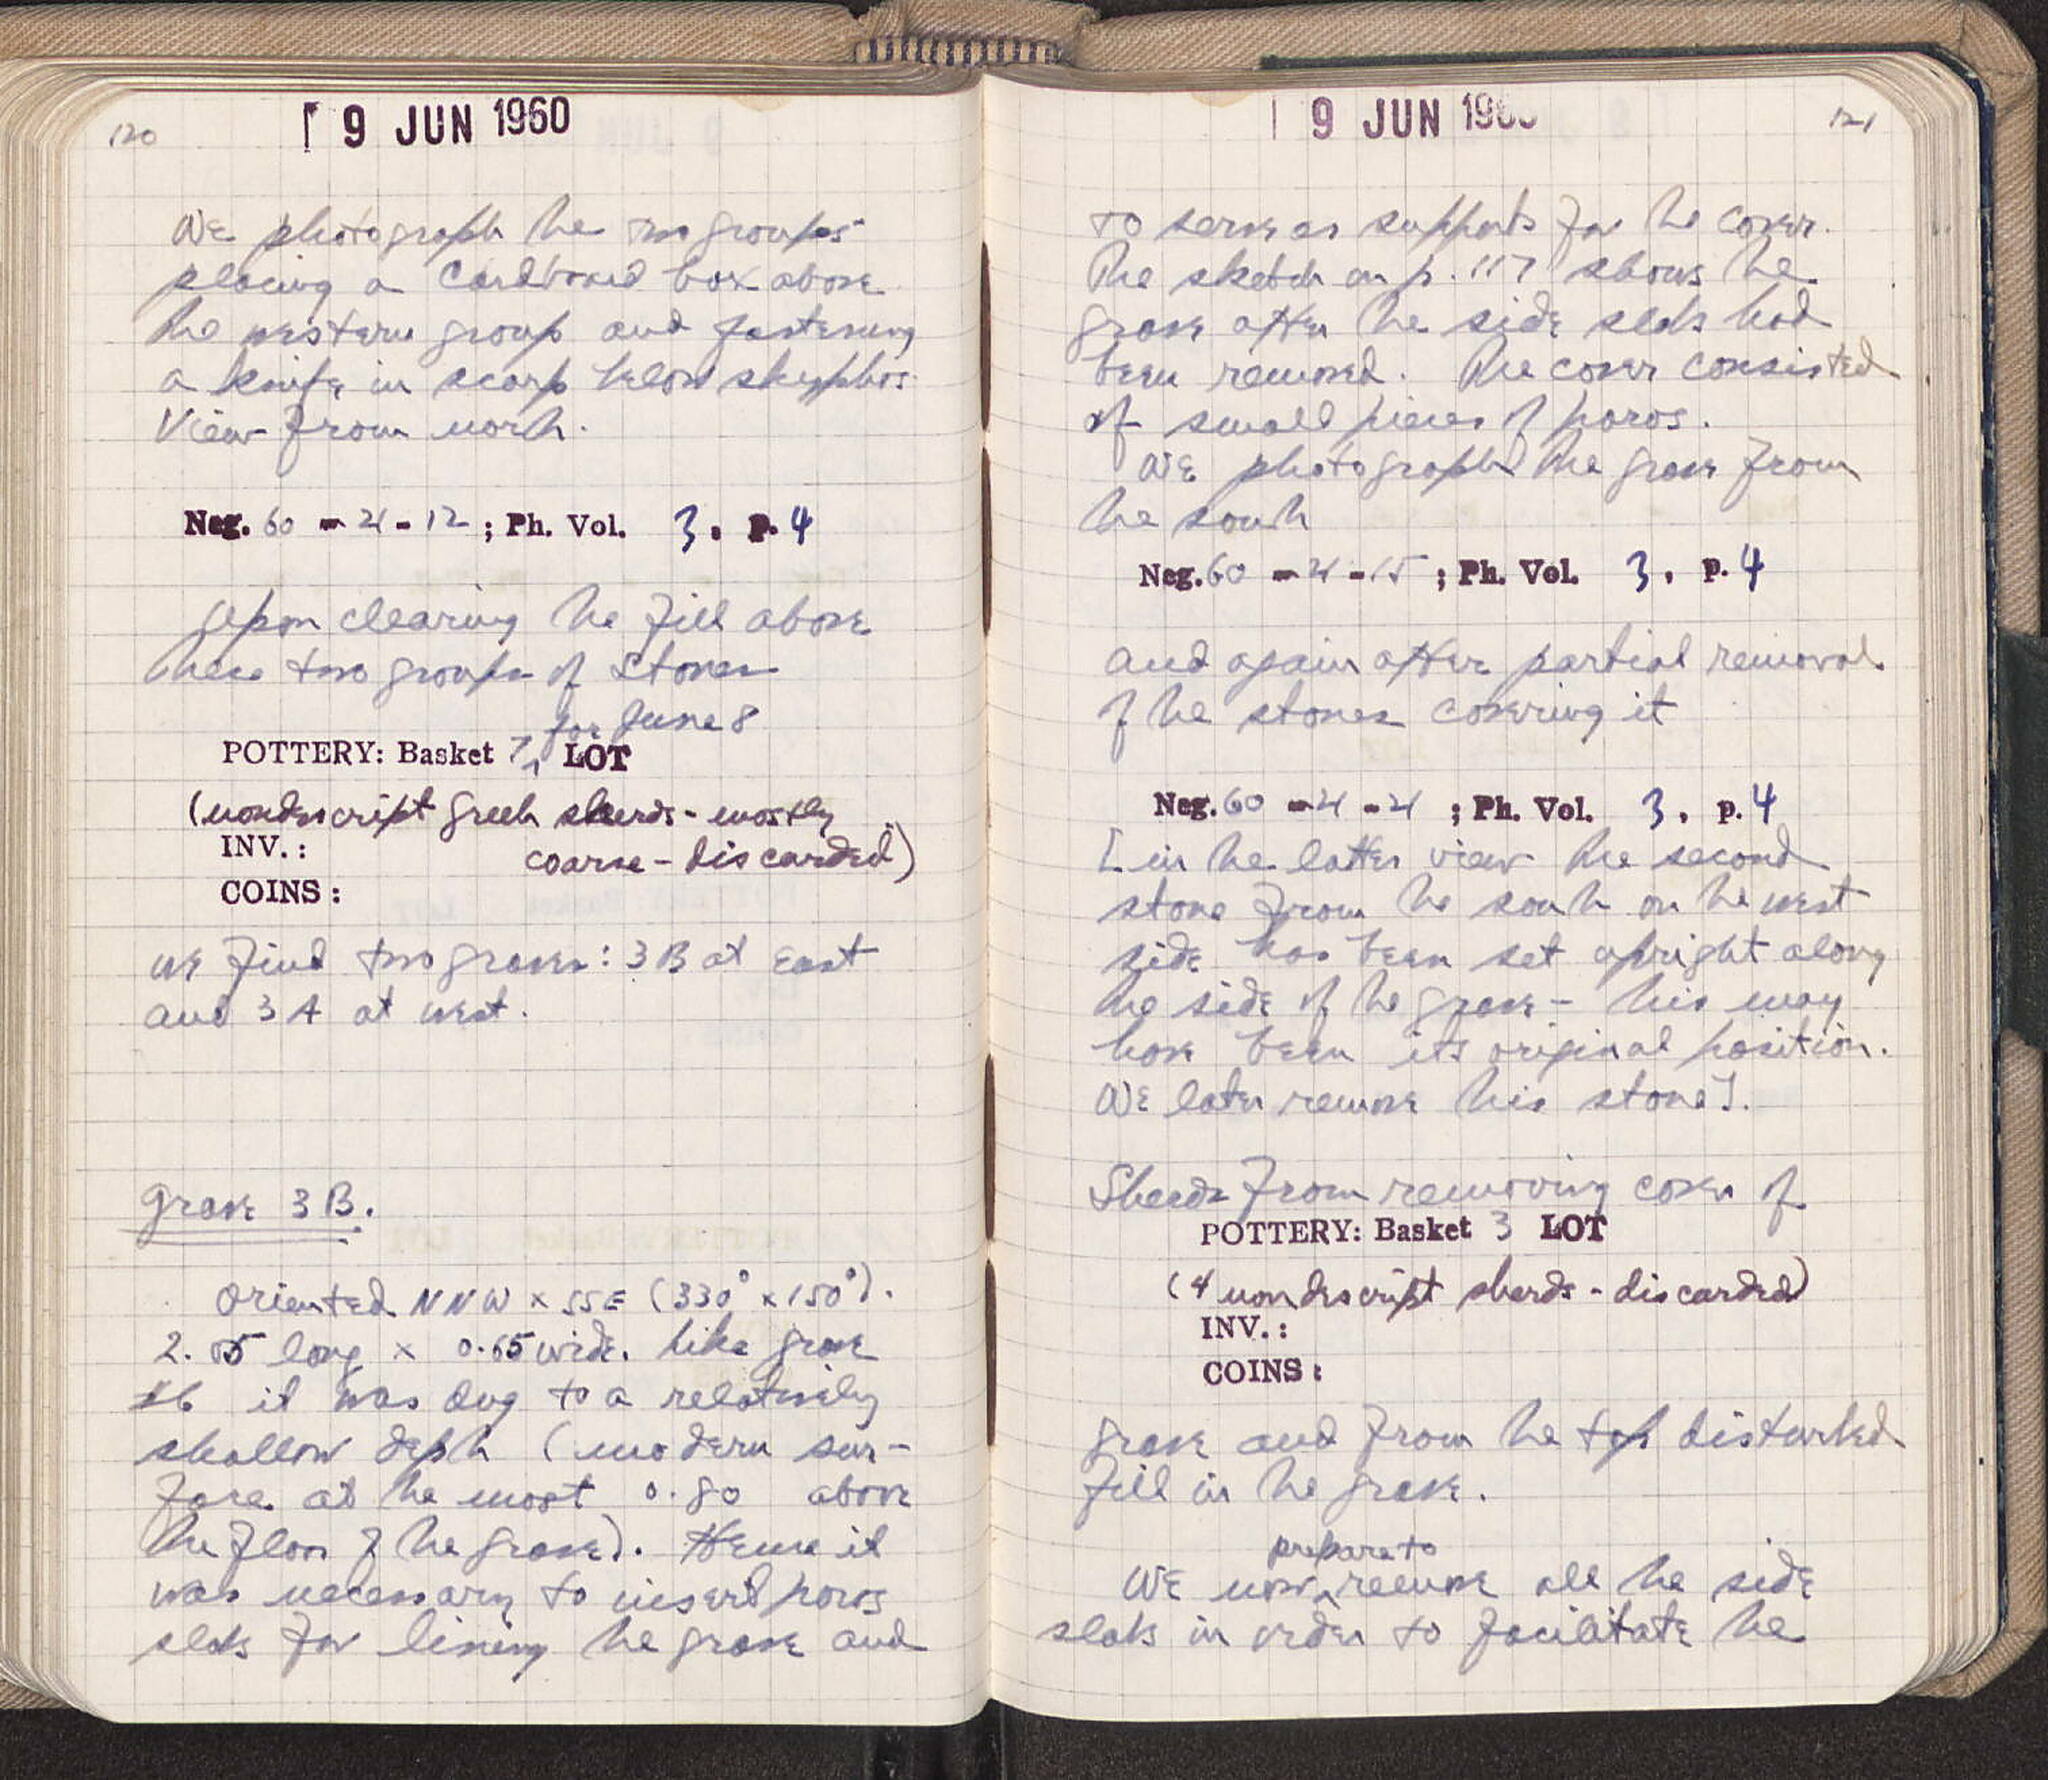 120
9 JUN 1960
We photograph the two groups
placing a cardboard box above
the western group and fastening
a knife in scarp below skyphos.
View from north.
Neg. 60 - 21 - 12 ; Ph. Vol. 3, p. 4
Upon clearing the fill above
these two groups of stones
for June 8
POTTERY: Basket 7, LOT
(nondescript Greek sherds - mostly
INV.: coarse - discarded)
COINS:
we find two graves: 3B at east
and 3A at west.
Grave 3B.
Oriented NNW x SSE (330° x 150°).
2.05 long x 0.65 wide. Like grave
it was dug to a relatively
shallow depth (modern sur-
face at the most 0.80 above
the floor of the grave). Hence it
was necessary to insert poros
slabs for lining the grave and
121
9 JUN 196
to serve as supports for the cover.
The sketch on p. 117 shows the
grave after the side slabs had
been removed. The cover consisted
of small pieces of poros.
We photograph the grave from
the south
Neg. 60 - 21 - 15 ; Ph. Vol. 3, p. 4
and again after partial removal
of the stones covering it
Neg. 60 - 21 - 21 ; Ph. Vol. 3, p. 4
[in the latter view the second
stone from the south on the west
side has been set upright along
the side of the grave - this may
have been its original position.
We later remove this stone].
Sherds from removing cover of
POTTERY: Basket 3 LOT
(4 nondescript sherds - discarded)
INV.:
COINS:
grave and from the top disturbed
fill in the grave.
prepare to
We now remove all the side
slabs in order to facilitate the